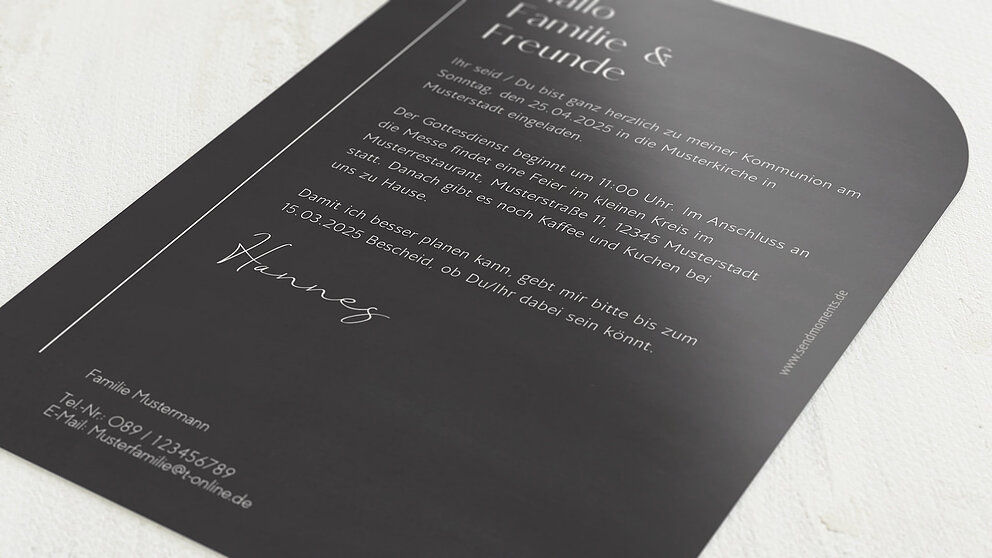 Hallo
Familie &
Freunde
Ihr seid / Du bist ganz herzlich zu meiner Kommunion am
Sonntag, den 25.04.2025 in die Musterkirche in
Musterstadt eingeladen.
Der Gottesdienst beginnt um 11:00 Uhr. Im Anschluss an
die Messe findet eine Feier im kleinen Kreis im
Musterrestaurant, Musterstraße 11, 12345 Musterstadt
statt. Danach gibt es noch Kaffee und Kuchen bei
uns zu Hause.
Damit ich besser planen kann, gebt mir bitte bis zum
15.03.2025 Bescheid, ob Du/Ihr dabei sein könnt.
Hannes
Familie Mustermann
Tel.-Nr.: 089 / 123456789
E-Mail: Musterfamilie@t-online.de
www.sendmoments.de